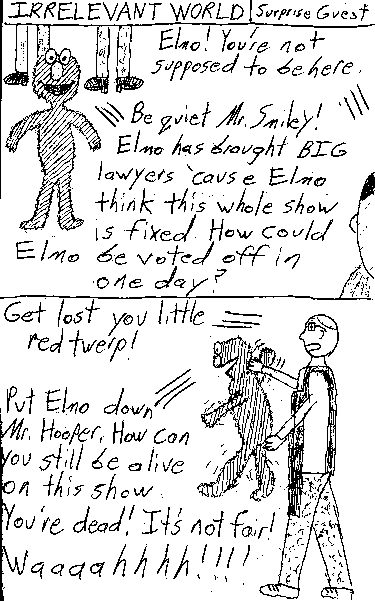 IRRELEVANT WORLD
Surprise Guest
Elmo! You're not
supposed to be here.
Be quiet Mr. Smiley!
Elmo has brought BIG
lawyers 'cause Elmo
think this whole show
is fixed. How could
Elmo be voted off in
one day?
Get lost you little
red twerp!
Put Elmo down
Mr. Hooper. How can
you still be alive
on this show.
You're dead! It's not fair!
Waaaahhhh!!!!